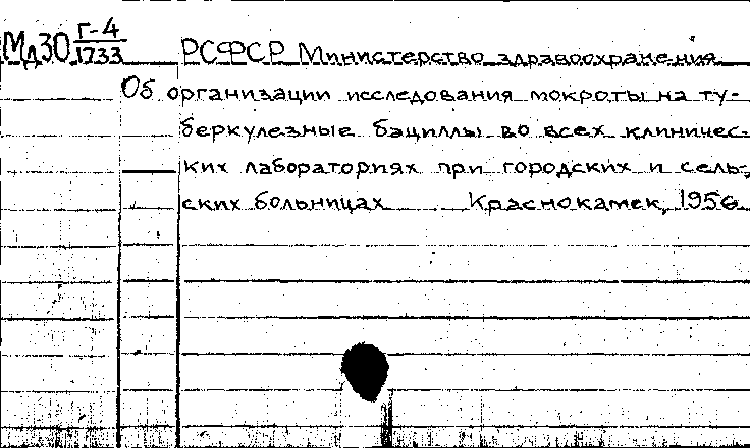 Мд30 Г-4/1733 РСФСР Министерство здравоохранения
Об организации исследования мокроты на ту-
беркулезные бациллы во всех клиничес-
ких лабораториях при городских и сель-
ских больницах Краснокамск, 1956